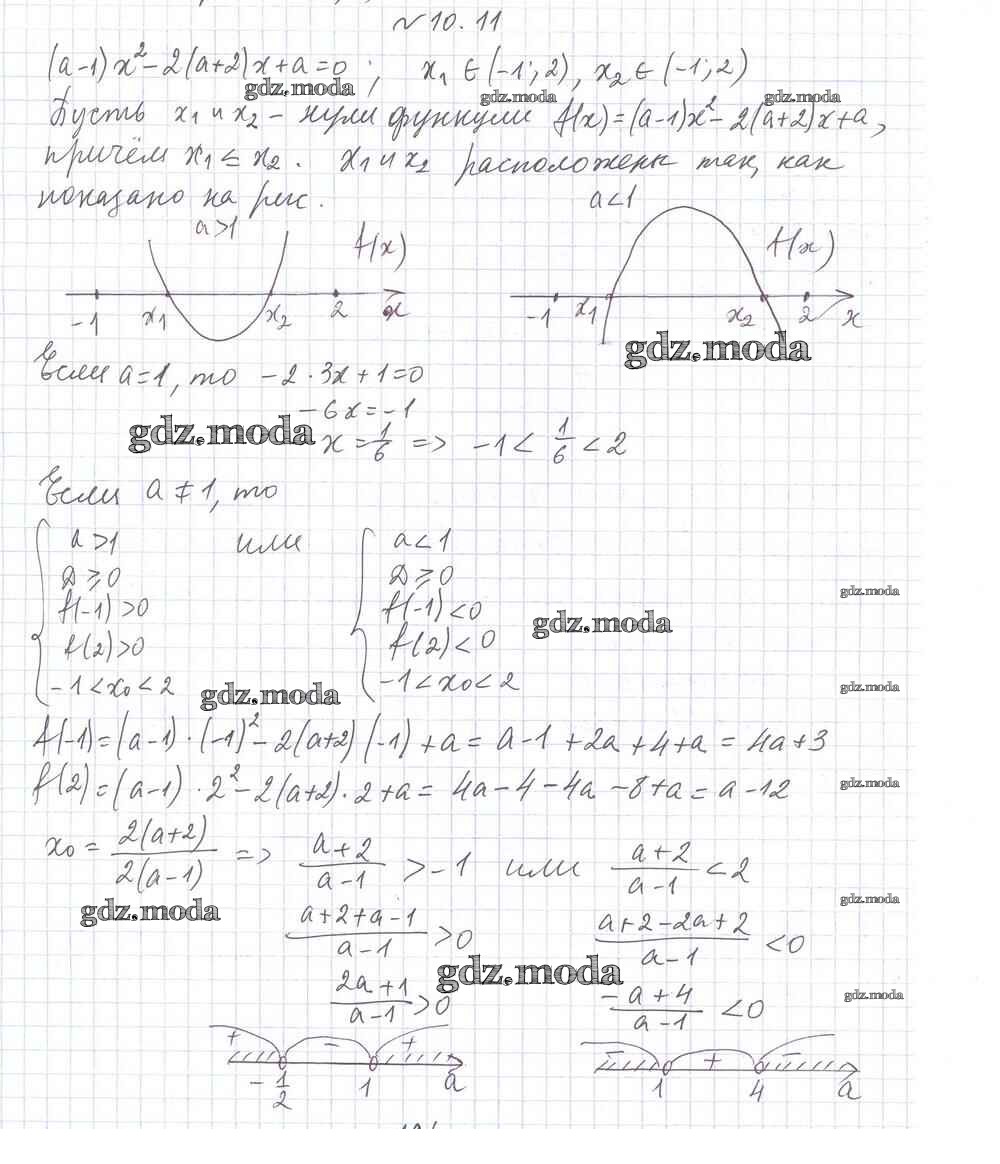 №10.11
(a-1)x²-2(a+2)x+a=0; x₁∈(-1;2), x₂∈(-1;2)
gdz.moda gdz.moda gdz.moda
Пусть x₁ и x₂ - нули функции f(x)=(a-1)x²-2(a+2)x+a,
причём x₁≤x₂. x₁ и x₂ расположены так, как
показано на рис.
a>1 a<1
f(x) f(x)
-1 x₁ x₂ 2 x -1 x₁ x₂ 2 x
gdz.moda
Если a=1, то -2·3x+1=0
-6x=-1
gdz.moda
x=1/6 => -1<1/6<2
Если a≠1, то
a>1 или a<1
D≥0 D≥0
gdz.moda
f(-1)>0 f(-1)<0
gdz.moda
f(2)>0 f(2)<0
-1<x₀<2 -1<x₀<2
gdz.moda gdz.moda
f(-1)=(a-1)·(-1)²-2(a+2)(-1)+a=a-1+2a+4+a=4a+3
f(2)=(a-1)·2²-2(a+2)·2+a=4a-4-4a-8+a=a-12
gdz.moda
x₀=2(a+2)/2(a-1) => (a+2)/(a-1)>-1 или (a+2)/(a-1)<2
gdz.moda gdz.moda
(a+2+a-1)/(a-1)>0 (a+2-2a+2)/(a-1)<0
gdz.moda
(2a+1)/(a-1)>0 (-a+4)/(a-1)<0
gdz.moda
+ - + - + -
-1/2 1 a 1 4 a